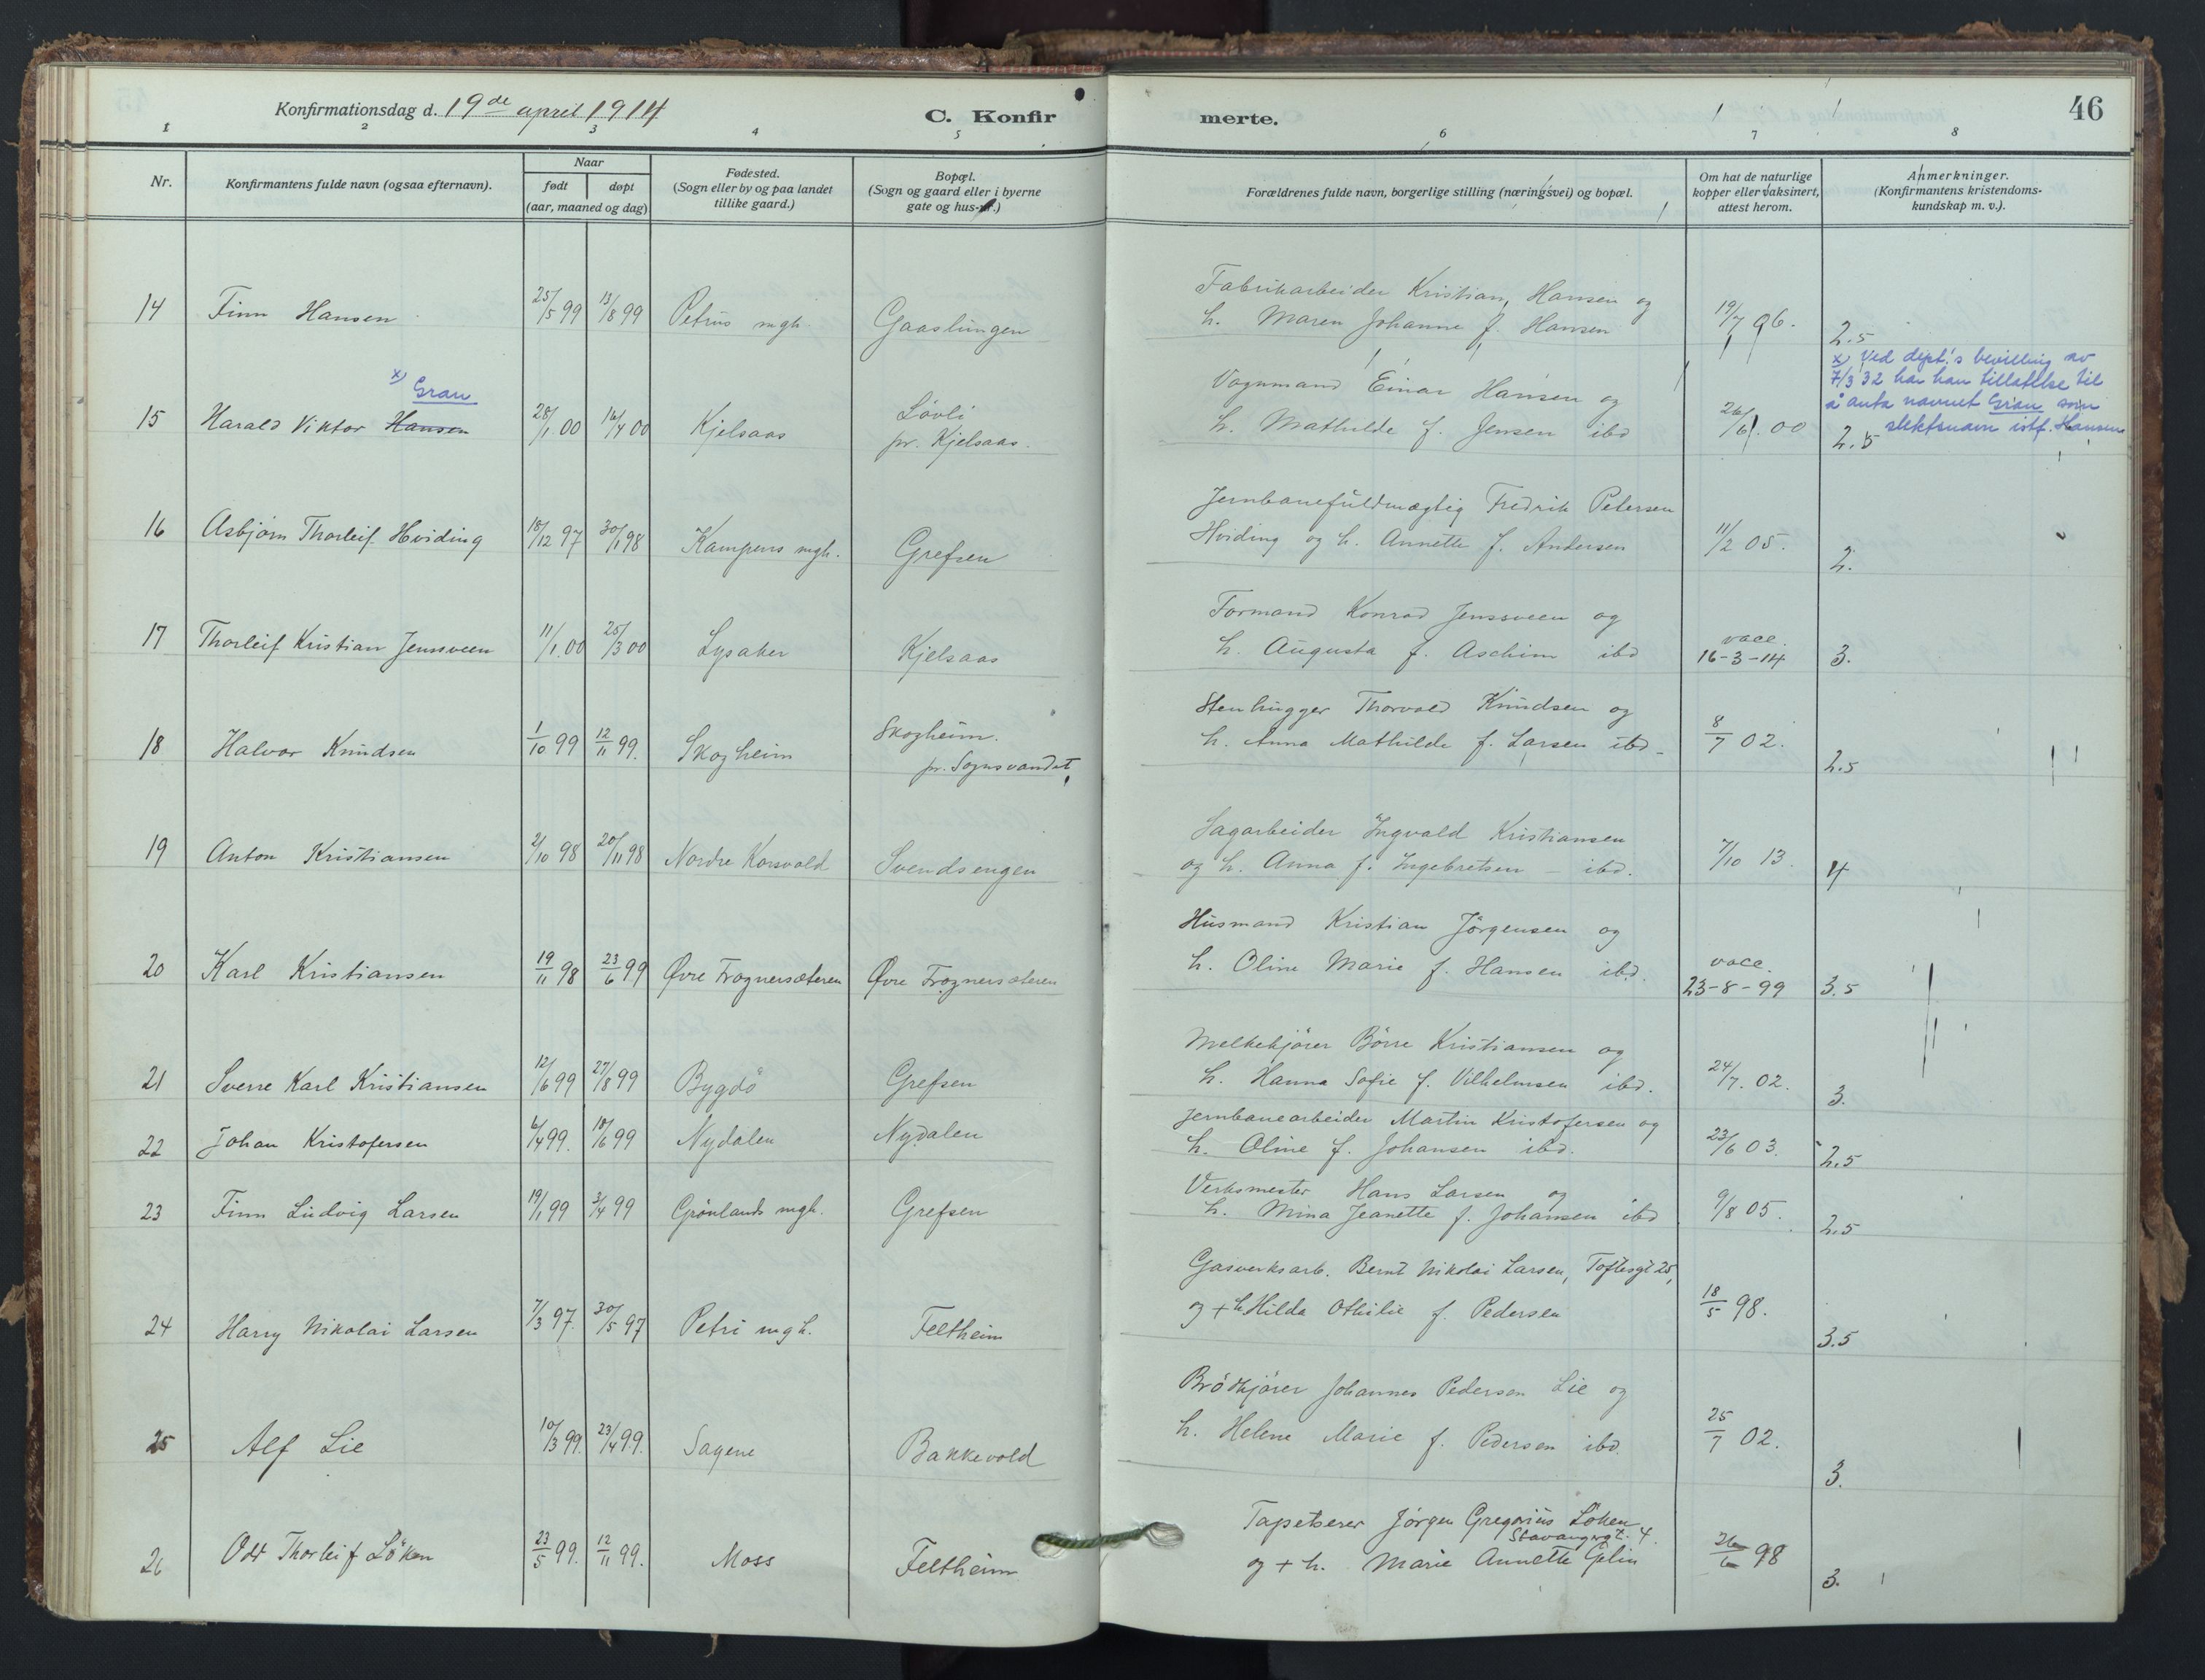 Konfirmationsdag d. 19de april 1914
C. Konfirmerte.
46
1 2 3 4 5 6 7 8
Nr.
Konfirmantens fulde navn (ogsaa efternavn).
Naar
født
døpt
(aar, maaned og dag)
Fødested.
(Sogn eller by og paa landet
tillike gaard.)
Bopæl.
(Sogn og gaard eller i byerne
gate og hus-nr.)
Forældrenes fulde navn, borgerlige stilling (næringsvei) og bopæl.
Om hat de naturlige
kopper eller vaksinert,
attest herom.
Anmerkninger.
(Konfirmantens kristendoms-
kundskap m. v.).
14 Finn Hansen 25/5 99 13/8 99 Petrus mgh. Gaaslungen
Fabrikarbeider Kristian Hansen og
h. Maren Johanne f. Hansen
19/7 96. 2.5
x) Gran
15 Harald Viktor Hansen 28/1.00 16/4 00 Kjelsaas Lövli
pr. Kjelsaas.
Vognmand Einar Hansen og
h. Mathilde f. Jensen ibd
26/6.00 2.5
x) Ved dept.'s bevilling av
7/3 32 har han tillatelse til
å anta navnet Gran som
slektsnavn istf. Hansen
16 Asbjørn Thorleif Hviding 18/12 97 30/1 98 Kampens mgh. Grefsen
Jernbanefuldmægtig Fredrik Petersen
Hviding og h. Annette f. Andersen
11/2 05. 2.
17 Thorleif Kristian Jenssveen 11/1.00 25/3 00 Lysaker Kjelsaas
Formand Konrad Jenssveen og
h. Augusta f. Aschim ibd
vacc.
16-3-14 3.
18 Halvor Knudsen 1/10 99 12/11 99. Skogheim Skogheim.
pr. Sognsvandet
Stenhugger Thorvald Knudsen og
h. Anna Mathilde f. Larsen ibd-
8/7 02. 2.5
19 Anton Kristiansen 2/10 98 20/11 98 Nordre Korsvold Svendsengen
Sagarbeider Ingvald Kristiansen
og h. Anna f. Ingebretsen - ibd.
7/10 13. 4
20 Karl Kristiansen 19/11 98 23/6 99 Øvre Frognersæteren Øvre Frognersæteren
Husmand Kristian Jörgensen og
h. Oline Marie f. Hansen ibd.
vacc.
23-8-99 3.5
21 Sverre Karl Kristiansen 12/6 99 27/8 99 Bygdö Grefsen
Melkekjører Börre Kristiansen og
h. Hanna Sofie f. Vilhelmsen ibd.
24/7.02. 3.
22 Johan Kristofersen 6/4 99. 18/6 99 Nydalen Nydalen
Jernbanearbeider Martin Kristofersen og
h. Oline f. Johansen ibd.
23/6 03. 2.5
23 Finn Ludvig Larsen 19/1 99 3/4 99 Grønlands mgh. Grefsen
Verksmester Hans Larsen og
h. Mina Jeanette f. Johansen ibd
9/8 05. 2.5
24 Harry Nikolai Larsen 7/3 97. 30/5 97 Petri mgh. Feltheim
Gasverksarb. Bernt Nikolai Larsen, Toftesgt 25,
og + h. Hilda Othilie f. Pedersen
18/5 98. 3.5
25 Alf Lie 10/3 99. 23/4 99. Sagene Bakkevold
Brödkjører Johannes Pedersen Lie og
h. Helene Marie f. Pedersen ibd.
25/7 02. 3.
26 Odd Thorleif Löken 23/5 99. 12/11 99. Moss Feltheim
Tapetserer Jörgen Gregorius Löken
Stavangergt. 4.
og + h. Marie Annette Gelin
26/6 98 3.